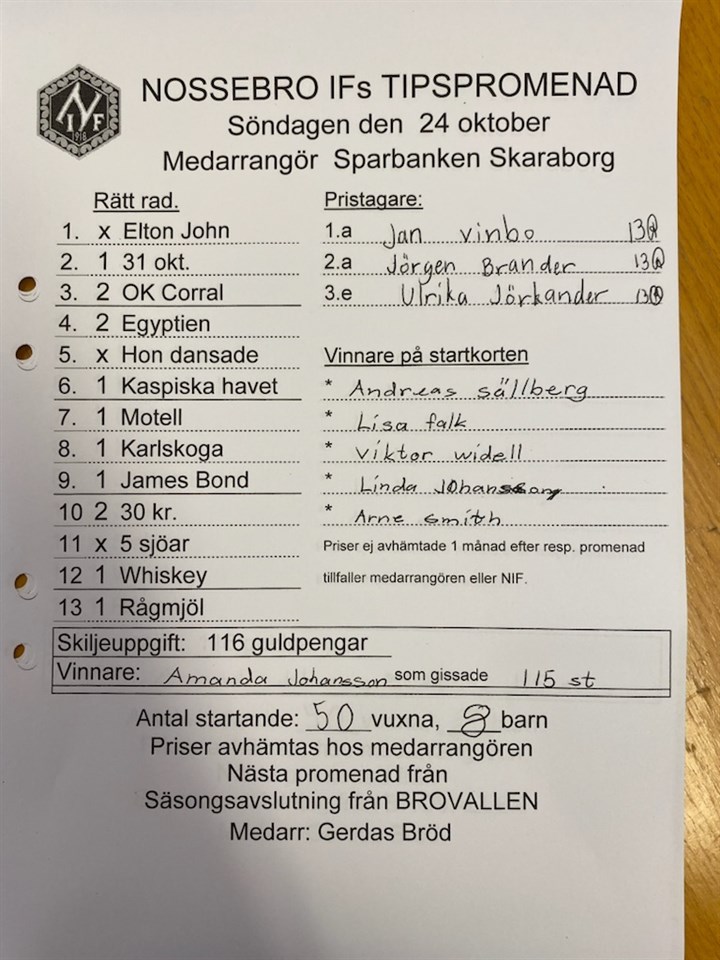 N I F 1918
NOSSEBRO IFs TIPSPROMENAD
Söndagen den 24 oktober
Medarrangör Sparbanken Skaraborg
Rätt rad.
1. x Elton John
2. 1 31 okt.
3. 2 OK Corral
4. 2 Egyptien
5. x Hon dansade
6. 1 Kaspiska havet
7. 1 Motell
8. 1 Karlskoga
9. 1 James Bond
10 2 30 kr.
11 x 5 sjöar
12 1 Whiskey
13 1 Rågmjöl
Pristagare:
1.a Jan vinbo 13R
2.a Jörgen Brander 13R
3.e Ulrika Jörkander 13R
Vinnare på startkorten
* Andreas sällberg
* Lisa falk
* Viktor widell
* Linda Johansson
* Arne smith
Priser ej avhämtade 1 månad efter resp. promenad
tillfaller medarrangören eller NIF.
Skiljeuppgift: 116 guldpengar
Vinnare: Amanda Johansson som gissade 115 st
Antal startande: 50 vuxna, 8 barn
Priser avhämtas hos medarrangören
Nästa promenad från
Säsongsavslutning från BROVALLEN
Medarr: Gerdas Bröd